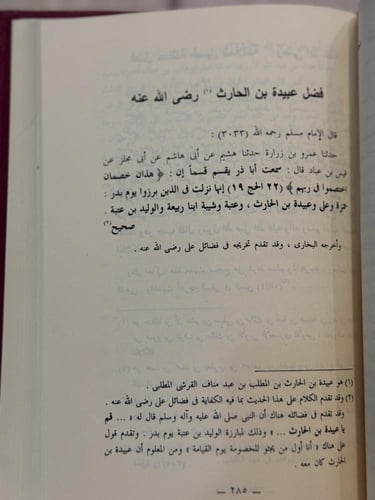 فضل عبيدة بن الحارث (١) رضى الله عنه
قال الإمام مسلم رحمه الله (٣٠٣٣) :
حدثنا عمرو بن زرارة حدثنا هشيم عن أبى هاشم عن أبى مجلز عن
قيس بن عباد قال : سمعت أبا ذر يقسم قسماً إن : ﴿ هذان خصمان
اختصموا فى ربهم ﴾ (٢٢ الحج ١٩) إنها نزلت فى الذين برزوا يوم بدر :
حمزة وعلى وعبيدة بن الحارث ، وعتبة وشيبة ابنا ربيعة والوليد بن عتبة .
صحيح(٢)
وأخرجه البخارى ، وقد تقدم تخريجه فى فضائل على رضى الله عنه .
(١) هو عبيدة بن الحارث بن المطلب بن عبد مناف القرشى المطلبى .
(٢) وقد تقدم الكلام على هذا الحديث بما فيه الكفاية فى فضائل على رضى الله عنه .
وقد تقدم فى فضائله هناك أن النبى صلى الله عليه وآله وسلم قال له « ... قم
يا عبيدة بن الحارث ... » وذلك لمبارزة الوليد بن عتبة يوم بدر . وتقدم قول
على هناك « أنا أول من يجثو للخصومة يوم القيامة » ومن المعلوم أن عبيدة بن
الحارث كان معه .
— ٢٨٥ —